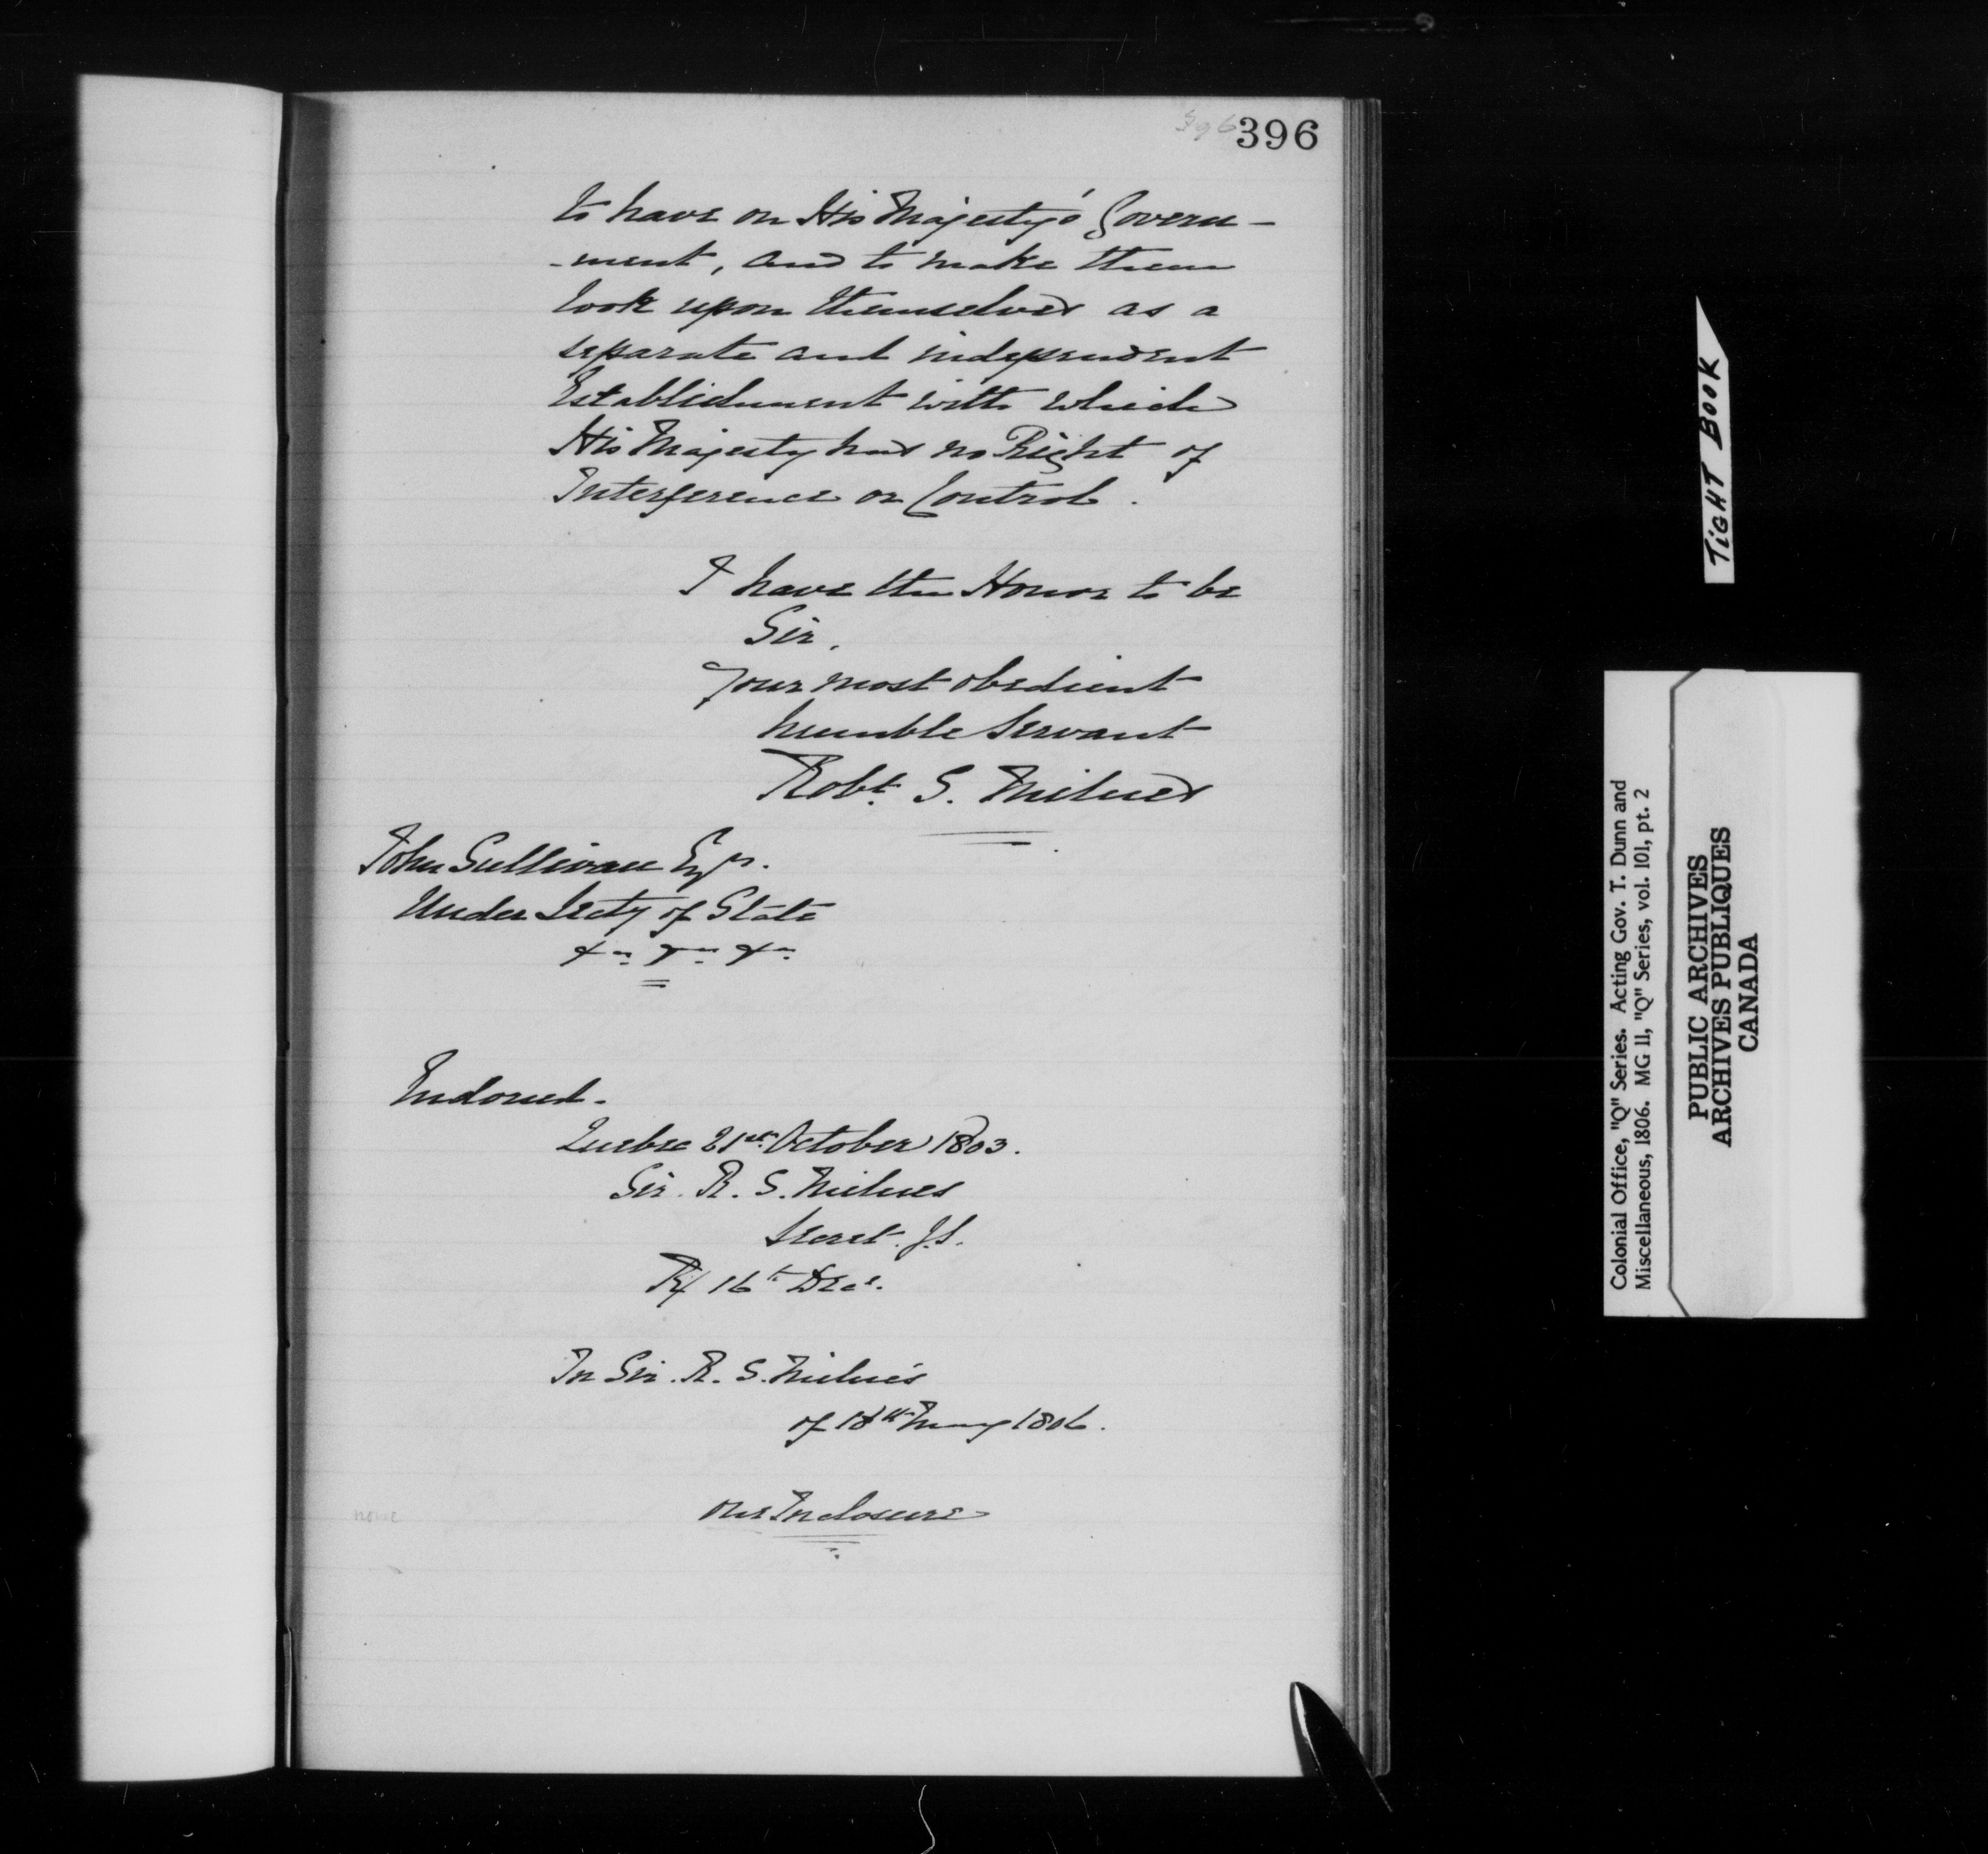 396 396
to have on His Majesty's Govern-
-ment, and to make them
look upon themselves as a
separate and independent
Establishment with which
His Majesty has no Right of
Interference or Control.
I have the Honor to be
Sir,
Your most obedient
humble Servant
Robt. S. Milnes
John Sullivan Esqr.
Under Secty of State
&c. &c. &c.
Endorsed.
Quebec 21st October 1803.
Sir. R. S. Milnes
Secret. J.S.
Rx 16th Decr.
In Sir. R. S. Milnes's
of 18th May 1806.
none
One Inclosure
TIGHT BOOK
Colonial Office, "Q" Series. Acting Gov. T. Dunn and
Miscellaneous, 1806. MG 11, "Q" Series, vol. 101, pt. 2
PUBLIC ARCHIVES
ARCHIVES PUBLIQUES
CANADA